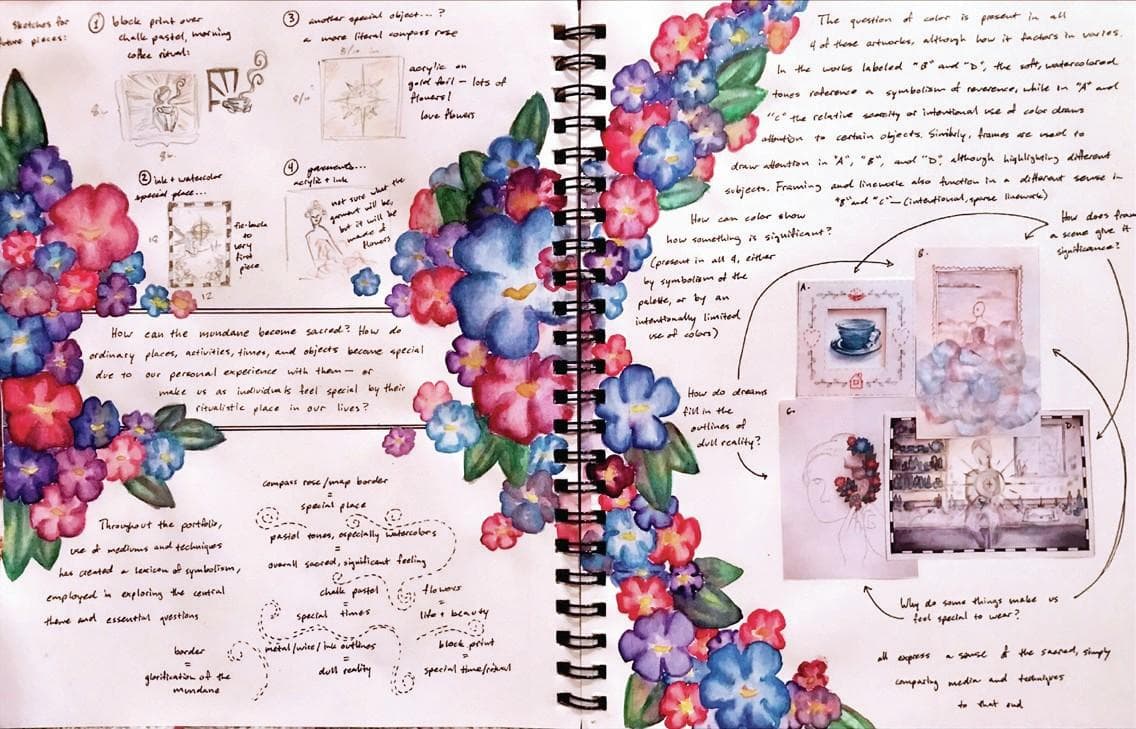 Sketches for
future pieces:
① block print over
chalk pastel, morning
coffee ritual:
8"
8"
② ink + watercolor
special place...
16
12
tie-back
to
very
first
piece
③ another special object...?
a more literal compass rose
8/10 in.
8/10"
acrylic on
gold foil — lots of
flowers!
love flowers
④
acrylic + ink
not sure what the
garment will be,
but it will be
made of
flowers
How can the mundane become sacred? How do
ordinary places, activities, times, and objects become special
due to our personal experience with them — or
make us as individuals feel special by their
ritualistic place in our lives?
Throughout the portfolio,
use of mediums and techniques
has created a lexicon of symbolism,
employed in exploring the central
theme and essential questions
compass rose/map border
=
special place
pastel tones, especially watercolors
=
overall sacred, significant feeling
chalk pastel
=
special times
flowers
=
life + beauty
metal/wire/ink outlines
=
dull reality
block print
=
special time/ritual
border
=
glorification of the
mundane
The question of color is present in all
4 of these artworks, although how it factors in varies.
In the works labeled "B" and "D", the soft, watercolored
tones reference a symbolism of reverence, while in "A" and
"C" the relative scarcity or intentional use of color draws
attention to certain objects. Similarly, frames are used to
draw attention in "A", "B", and "D", although highlighting different
subjects. Framing and linework also function in a different sense in
"B" and "C" — (intentional, sparse linework)
How can color show
how something is significant?
(present in all 4, either
by symbolism of the
palette, or by an
intentionally limited
use of colors)
How does
a scene give it
significance?
A.
B.
C.
D.
How do dreams
fill in the
outlines of
dull reality?
Why do some things make us
feel special to wear?
all express a sense of the sacred, simply
comparing media and techniques
to that end